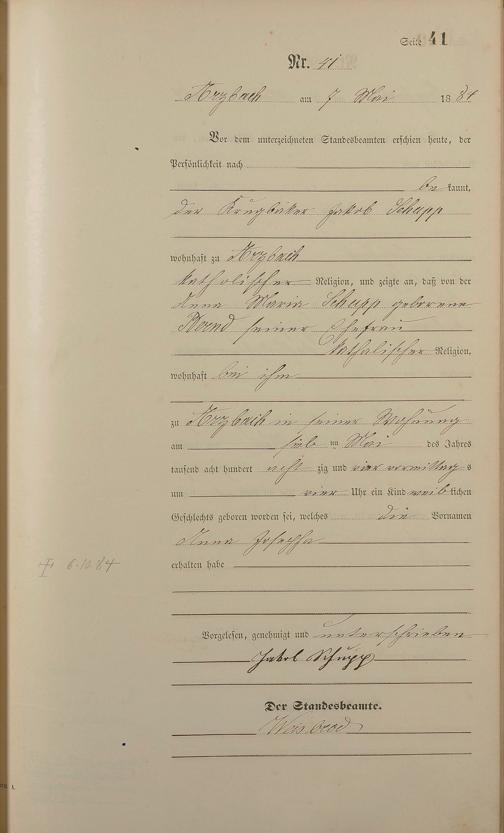 Seite 41
Nr. 41
Arzbach am 7 Mai 1884
Vor dem unterzeichneten Standesbeamten erschien heute, der
Persönlichkeit nach
be kannt,
der Krugbäcker Jakob Schupp
wohnhaft zu Arzbach
katholischer Religion, und zeigte an, daß von der
Anna Maria Schupp geborene
seiner Ehefrau
katholischer Religion,
wohnhaft bei ihm
zu Arzbach in seiner Wohnung
am ten Mai des Jahres
tausend acht hundert acht zig und vier vormittag s
um vier Uhr ein Kind weib lichen
Geschlechts geboren worden sei, welches die Vornamen
Anna Josepha
erhalten habe
6.10.84
Vorgelesen, genehmigt und unterschrieben
Jakob Schupp
Der Standesbeamte.